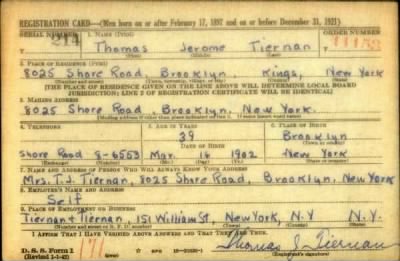 REGISTRATION CARD—(Men born on or after February 17, 1897 and on or before December 31, 1921)
SERIAL NUMBER 1. NAME (Print) ORDER NUMBER
214 Thomas Jerome Tiernan 11153
(First) (Middle) (Last)
2. PLACE OF RESIDENCE (Print)
8025 Shore Road, Brooklyn, Kings, New York
(Number and street) (Town, township, village, or city) (County) (State)
[THE PLACE OF RESIDENCE GIVEN ON THE LINE ABOVE WILL DETERMINE LOCAL BOARD
JURISDICTION; LINE 2 OF REGISTRATION CERTIFICATE WILL BE IDENTICAL]
3. MAILING ADDRESS
8025 Shore Road, Brooklyn, New York.
4. TELEPHONE 5. AGE IN YEARS 6. PLACE OF BIRTH
39 Brooklyn
DATE OF BIRTH
Shore Road 8-6553 Mar. 16 1902 New York
(Exchange) (Number) (Mo.) (Day) (Yr.) (State or country)
7. NAME AND ADDRESS OF PERSON WHO WILL ALWAYS KNOW YOUR ADDRESS
Mrs. T. J. Tiernan, 8025 Shore Road, Brooklyn, New York
8. EMPLOYER'S NAME AND ADDRESS
Self
9. PLACE OF EMPLOYMENT OR BUSINESS
Tiernan & Tiernan, 151 William St, New York, N.Y N.Y.
(Number and street or R. F. D. number) (Town) (County) (State)
I AFFIRM THAT I HAVE VERIFIED ABOVE ANSWERS AND THAT THEY ARE TRUE.
D. S. S. Form 1
(Revised 1-1-42) Thomas J. Tiernan